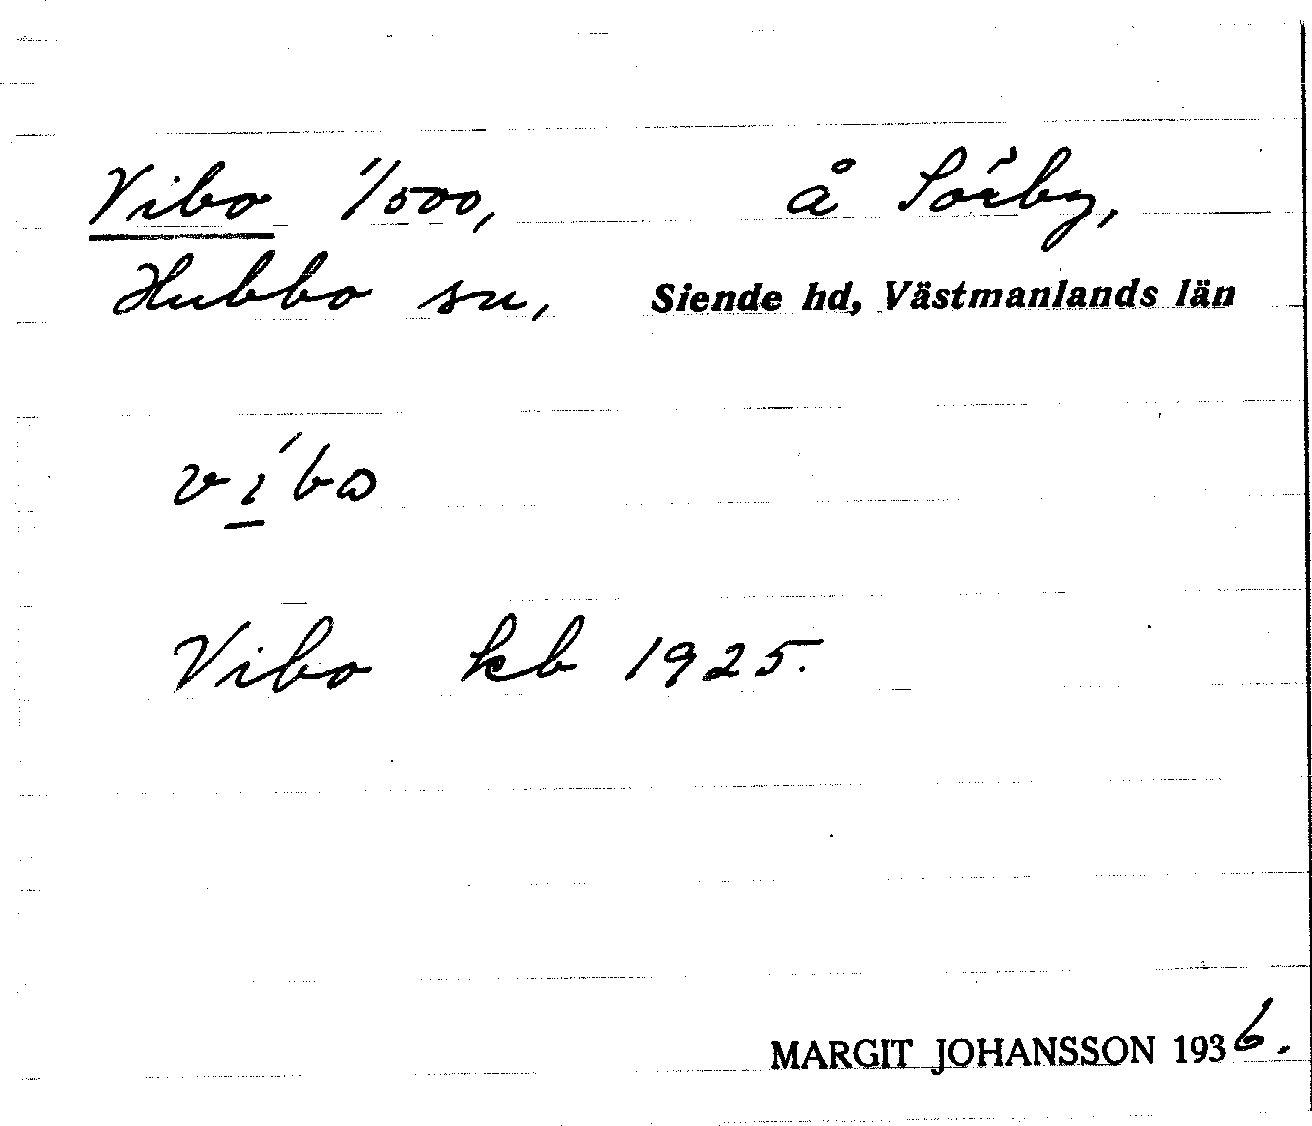 Vibo 1/500, å Sörby,
Hubbo sn, Siende hd, Västmanlands län
víbo
Vibo kb 1925.
MARGIT JOHANSSON 1936.